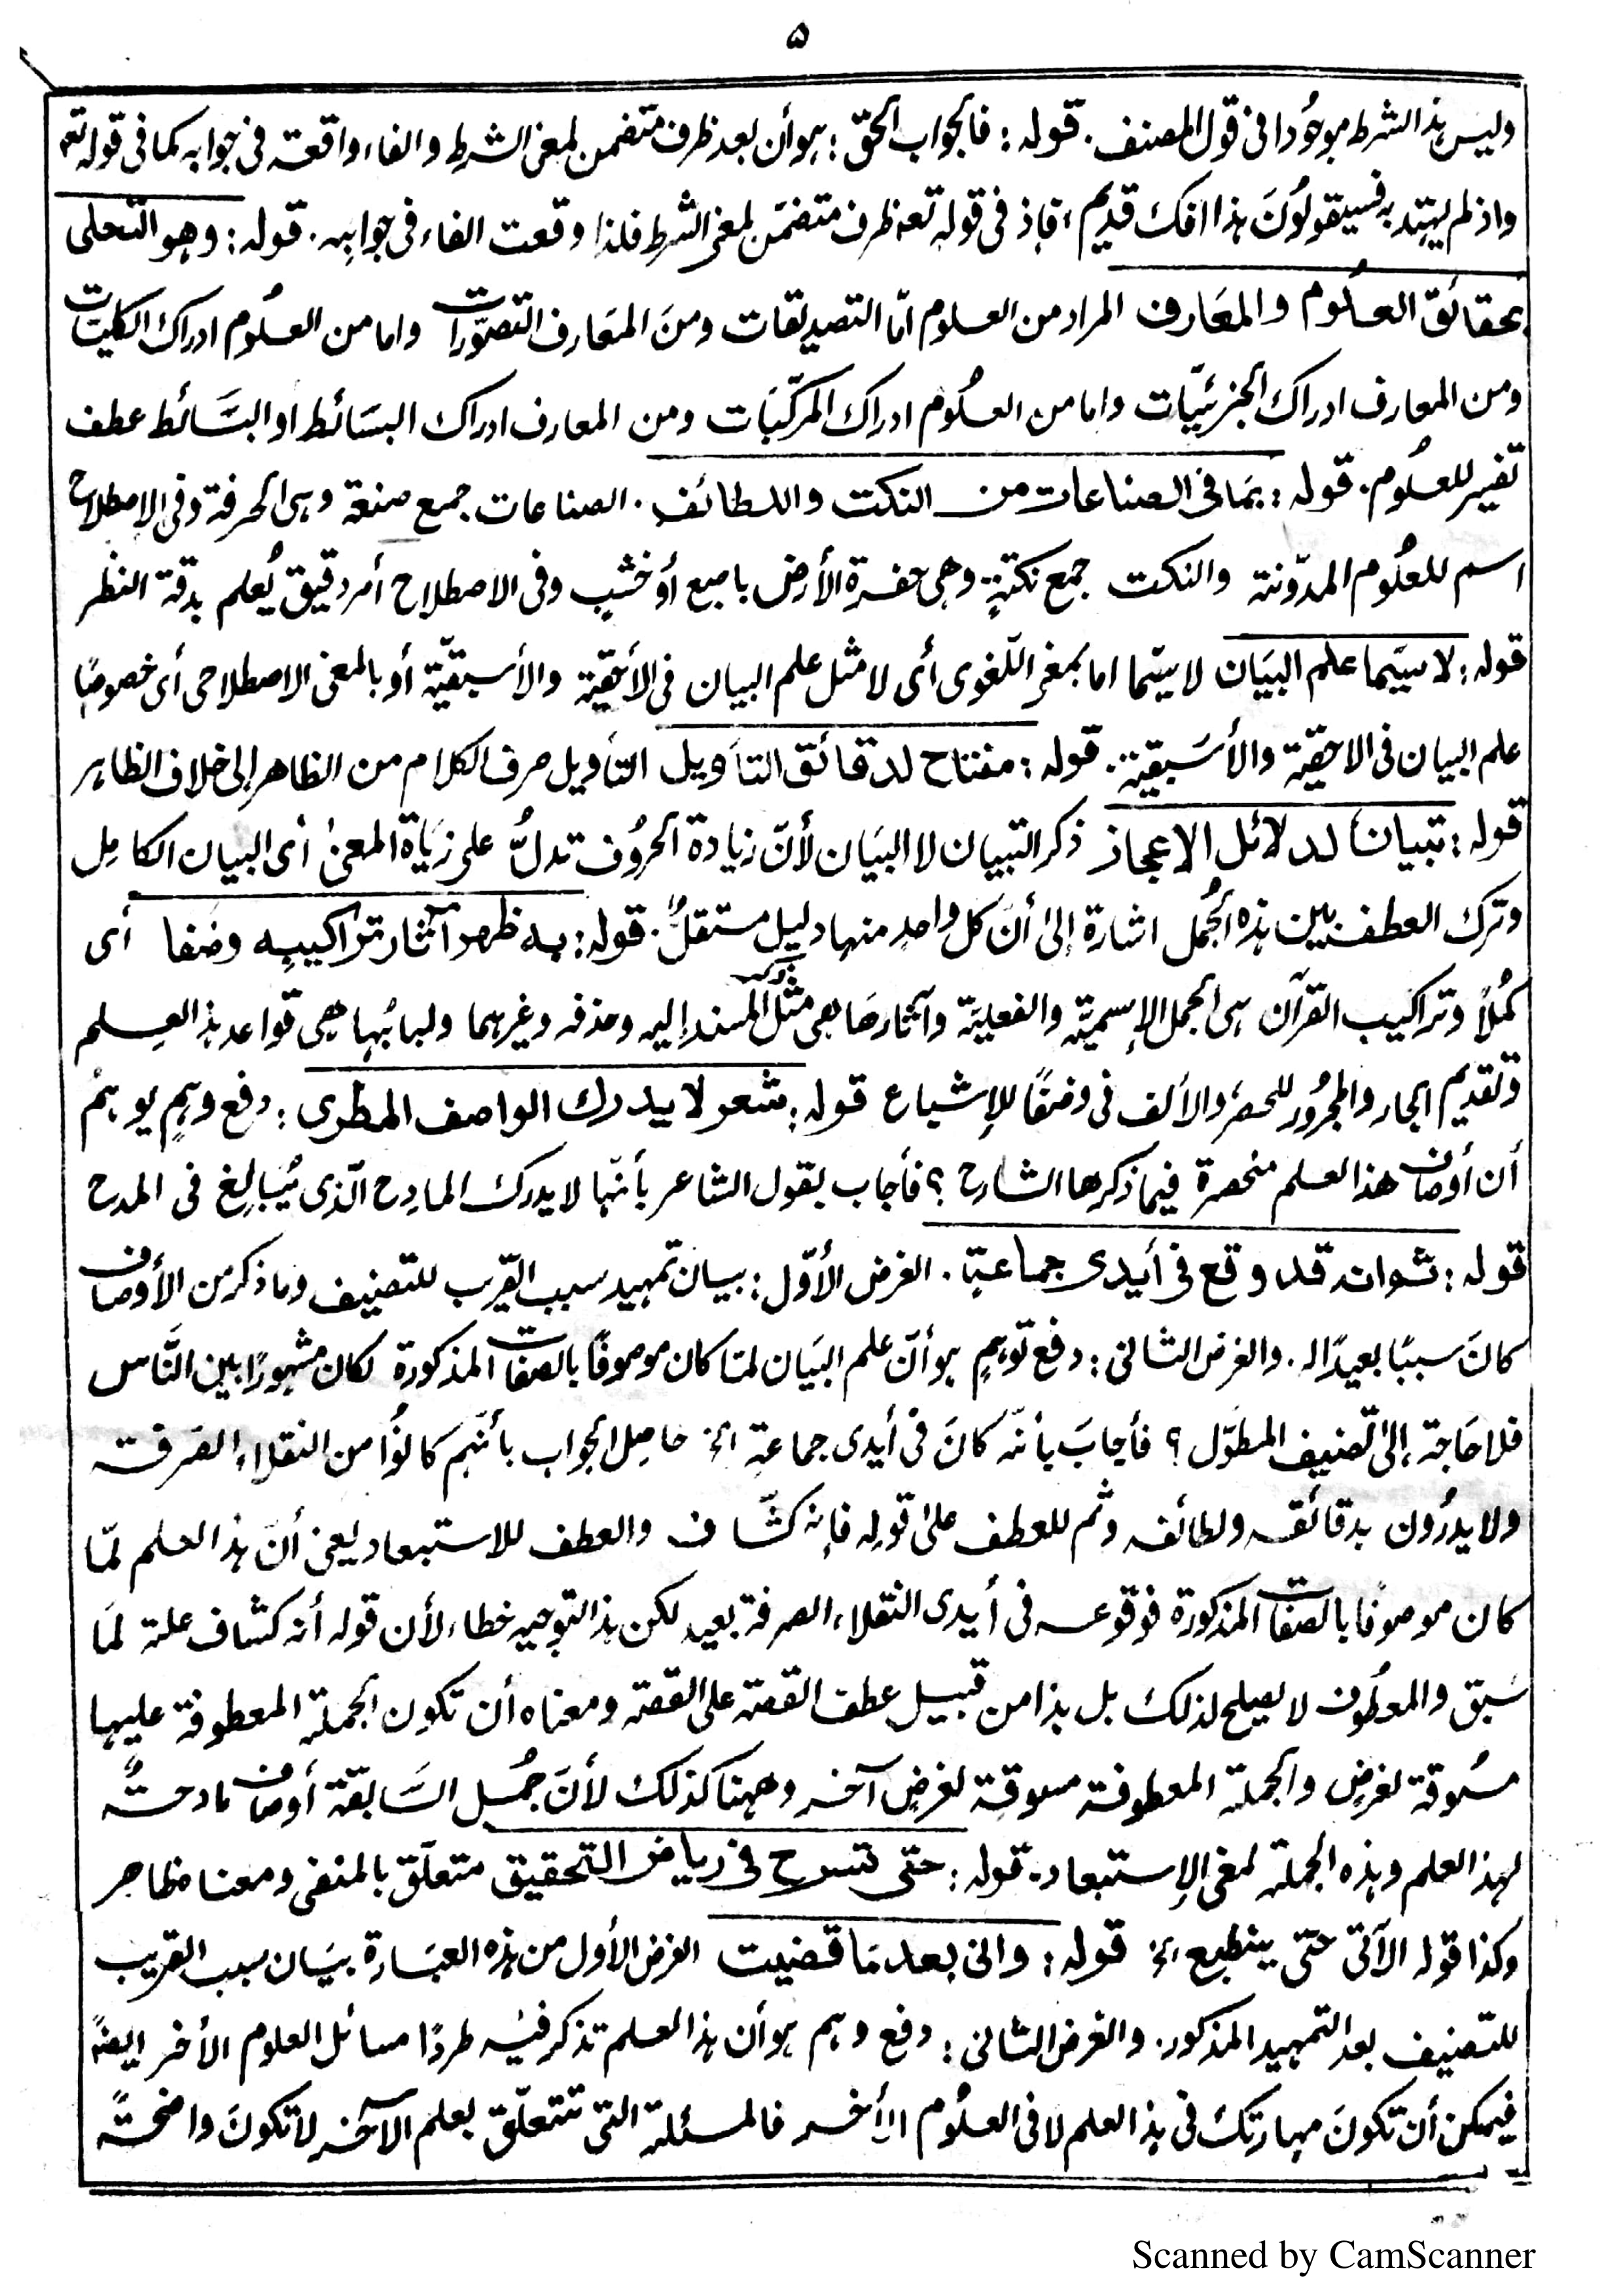 ۵
وليس هذا الشرط موجُودا فى قول المصنف. قوله: فالجواب الحقّ: هو أن بعد ظرف متضمن لمعنى الشرط والفاء واقعة فى جوابه كما فى قوله تعـ
واذ لم يهتدوا به فسيقولُونَ هذا افك قديم، فإذ فى قوله تعـ ظرف متضمّن لمعنى الشرط فلذا وقعت الفاء فى جوابه. قوله: وهو التحلى
بحقائق العلُوم والمعَارف المراد من العلوم امّا التصديقات ومنَ المعَارف التصوّرات واما من العلُوم ادراك الكليّات
ومن المعارف ادراك الجزئيّات واما من العلُوم ادراك المركّبَات ومن المعارف ادراك البسَائط او البسَّائط عطف
تفسير للعلُوم. قوله: بمَا فى الصناعات من النكت واللطائف. الصناعات جمع صنعة وهى الحرفة وفى الإصطلاح
اسم للعلُوم المدّونة والنكت جمع نكتةٍ وهى حفرة الأرض باصبع أو خشبٍ وفى الاصطلاح أمر دقيق يُعلم بدقة النظر
قوله: لا سيّما علم البيَان لا سيّما اما بمعنى اللّغوى أى لا مثل علم البيان فى الأحقيّة والأسبقيّة أو بالمعنى الاصطلاحى أى خصوصًا
علم البيان فى الاحقيّة والأسَبقيّة. قوله: مفتاح لدقائق التأويل التأويل صرف الكلام من الظاهر إلى خلاف الظاهر
قوله: تبيان لدلائل الاعجاز ذكر التبيان لا البيَان لأنّ زيادة الحرُوف تدلُّ على زيَاة المعنىٰ أى البيان الكامِل
وترك العطف بين هذه الجُمل اشارة إلىٰ أنَ كل واحدٍ منها دليل مستقلٌّ. قوله: به ظهر آثار تراكيبِه وضفا أى
كُملاً وتراكيب القرآن هى الجمل الإسميّة والفعليّة وآثارها هى مثل ذكر المسند إليه وحذفه وغيرهما ولبابُها هى قواعد هذا العلم
وتقديم الجار والمجرُور للحصَر والألف فى وضفًا للإشباع قوله: شعر لا يدرك الواصف المطرى: دفع وهمٍ يوهمُ
أن أوصاف هذا العلم منحصرة فيما ذكرها الشارح؟ فأجاب بقول الشاعر بأنّها لا يدرك المادح الّذى يُبالغ فى المدح
قوله: ثم انه قد وقع فى أيدى جماعةٍ. الغرض الأوّل: بيان تمهيد سبب القريب للتصنيف وما ذكر من الأوصاف
كانَ سببًا بعيدًا له. والغرض الثانى: دفع توهمٍ هو أنّ علم البيَان لمّا كان موصوفًا بالصفات المذكورة لكان مشهورًا بين النَّاس
فلا حَاجة إلىٰ تصنيف المطوّل؟ فأجابَ بأنّه كانَ فى أيدى جماعةٍ الخ حاصِل الجواب بأنّهم كانوُا من النقلاء الصَرفة
ولا يدرُون بدقائقه ولطائفه وثم للعطف علىٰ قوله فإنه كشّاف والعطف للاستبعاد يعنى أنَ هذا العلم لمّا
كان موصوفًا بالصفات المذكورة فوقوعه فى أيدى النقلاء الصرفة بعيد لكن هذا التوجيه خطاء لأن قوله أنه كشاف علة لمَا
سَبق والمعطُوف لا يصلح لذلك بل هذا من قبيل عطف القصة على القصة ومعناه أن تكون الجملة المعطوفة عليها
مسُوقة لغرضٍ والجملة المعطوفة مسوقة لغرضٍ آخر وههنا كذلك لأنَ جمُل السَابقة أوصاف مادحةٌ
لهذا العلم وهذه الجملة لمعنى الإستبعاد. قوله: حتى تسرح فى رياض التحقيق متعلّق بالمنفى ومعناه ظاهر
وكذا قوله الآتى حتّى ينطبع الخ قوله: وانى بعد مَا قضيت الغرض الأول من هذه العبَارة بيَان سبب القريب
للتصنيف بعد التمهيد المذكور. والغرض الثانى: دفع وهم هو أن هذا العلم تذكر فيْه طردًا مسائل العلوم الأخر ايضًا
فيمكن أن تكونَ مهارتكَ فى هذا العلم لا فى العلُوم الأخر فالمسئلة التى تتعلّق بعلم الآخَر لا تكونَ واضحةً
Scanned by CamScanner